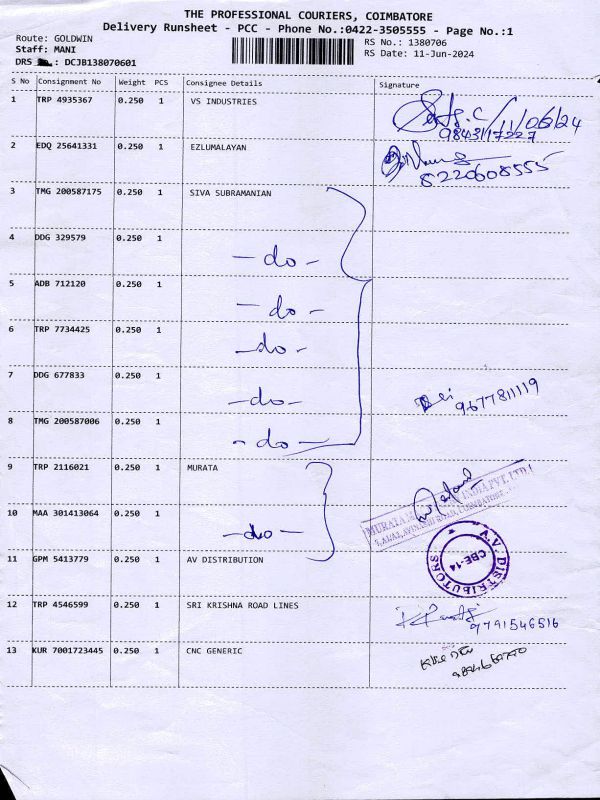 THE PROFESSIONAL COURIERS, COIMBATORE
Delivery Runsheet - PCC - Phone No.:0422-3505555 - Page No.:1
Route: GOLDWIN
RS No.: 1380706
Staff: MANI
RS Date: 11-Jun-2024
DRS : DCJB138070601
S No Consignment No Weight PCS Consignee Details Signature
1 TRP 4935367 0.250 1 VS INDUSTRIES
11/06/24
9843117227
2 EDQ 25641331 0.250 1 EZLUMALAYAN
8220608555
3 TMG 200587175 0.250 1 SIVA SUBRAMANIAN
4 DDG 329579 0.250 1
-do-
5 ADB 712120 0.250 1
-do-
6 TRP 7734425 0.250 1
-do-
7 DDG 677833 0.250 1
-do-
9677811119
8 TMG 200587006 0.250 1
-do-
9 TRP 2116021 0.250 1 MURATA
MURATA INDIA PVT. LTD.
10 MAA 301413064 0.250 1
-do-
11 GPM 5413779 0.250 1 AV DISTRIBUTION
A.V. DISTRIBUTORS
CBE-14
12 TRP 4546599 0.250 1 SRI KRISHNA ROAD LINES
9791546516
13 KUR 7001723445 0.250 1 CNC GENERIC